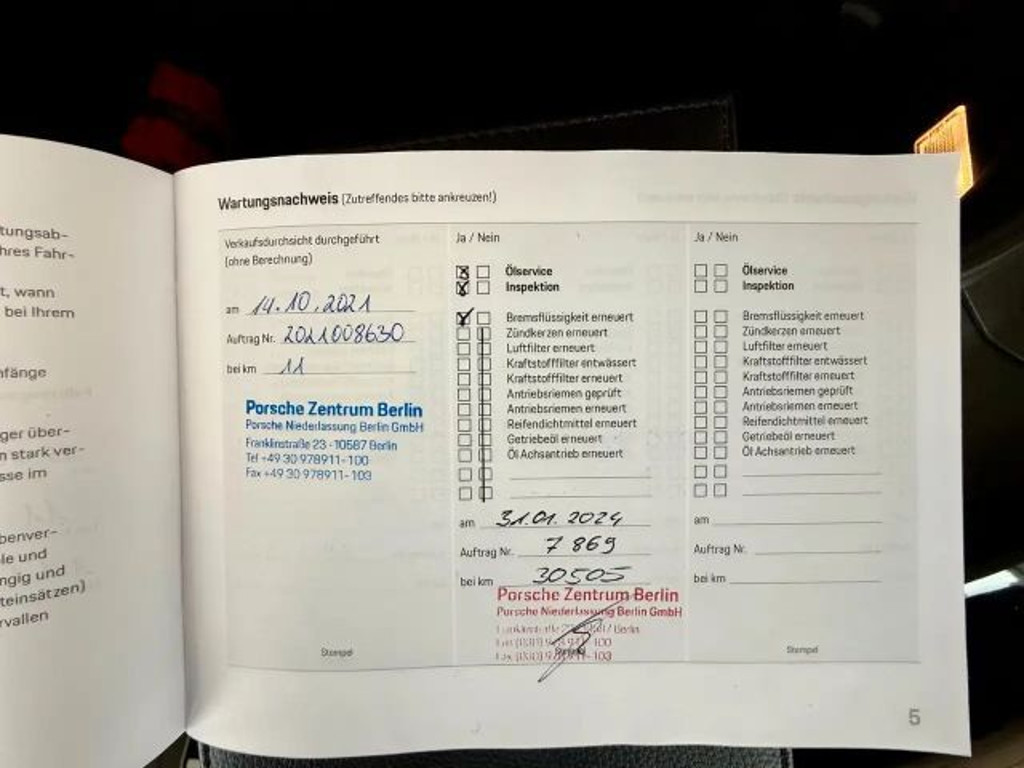 tungsab-
hres Fahr-
t, wann
bei Ihrem
nfänge
ger über-
n stark ver-
sse im
benver-
le und
ngig und
teinsätzen)
rvallen
Wartungsnachweis (Zutreffendes bitte ankreuzen!)
Verkaufsdurchsicht durchgeführt
(ohne Berechnung)
am 14.10.2021
Auftrag Nr. 2021008630
bei km 11
Porsche Zentrum Berlin
Porsche Niederlassung Berlin GmbH
Franklinstraße 23 - 10587 Berlin
Tel +49 30 978911-100
Fax +49 30 978911-103
Stempel
Ja / Nein
Ölservice
Inspektion
Bremsflüssigkeit erneuert
Zündkerzen erneuert
Luftfilter erneuert
Kraftstofffilter entwässert
Kraftstofffilter erneuert
Antriebsriemen geprüft
Antriebsriemen erneuert
Reifendichtmittel erneuert
Getriebeöl erneuert
Öl Achsantrieb erneuert
am 31.01.2024
Auftrag Nr. 7869
bei km 30505
Porsche Zentrum Berlin
Porsche Niederlassung Berlin GmbH
Ja / Nein
Ölservice
Inspektion
Bremsflüssigkeit erneuert
Zündkerzen erneuert
Luftfilter erneuert
Kraftstofffilter entwässert
Kraftstofffilter erneuert
Antriebsriemen geprüft
Antriebsriemen erneuert
Reifendichtmittel erneuert
Getriebeöl erneuert
Öl Achsantrieb erneuert
am
Auftrag Nr.
bei km
Stempel
5